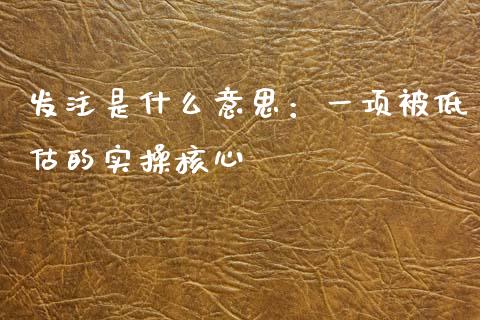 发注是什么意思：一项被低
估的实操核心